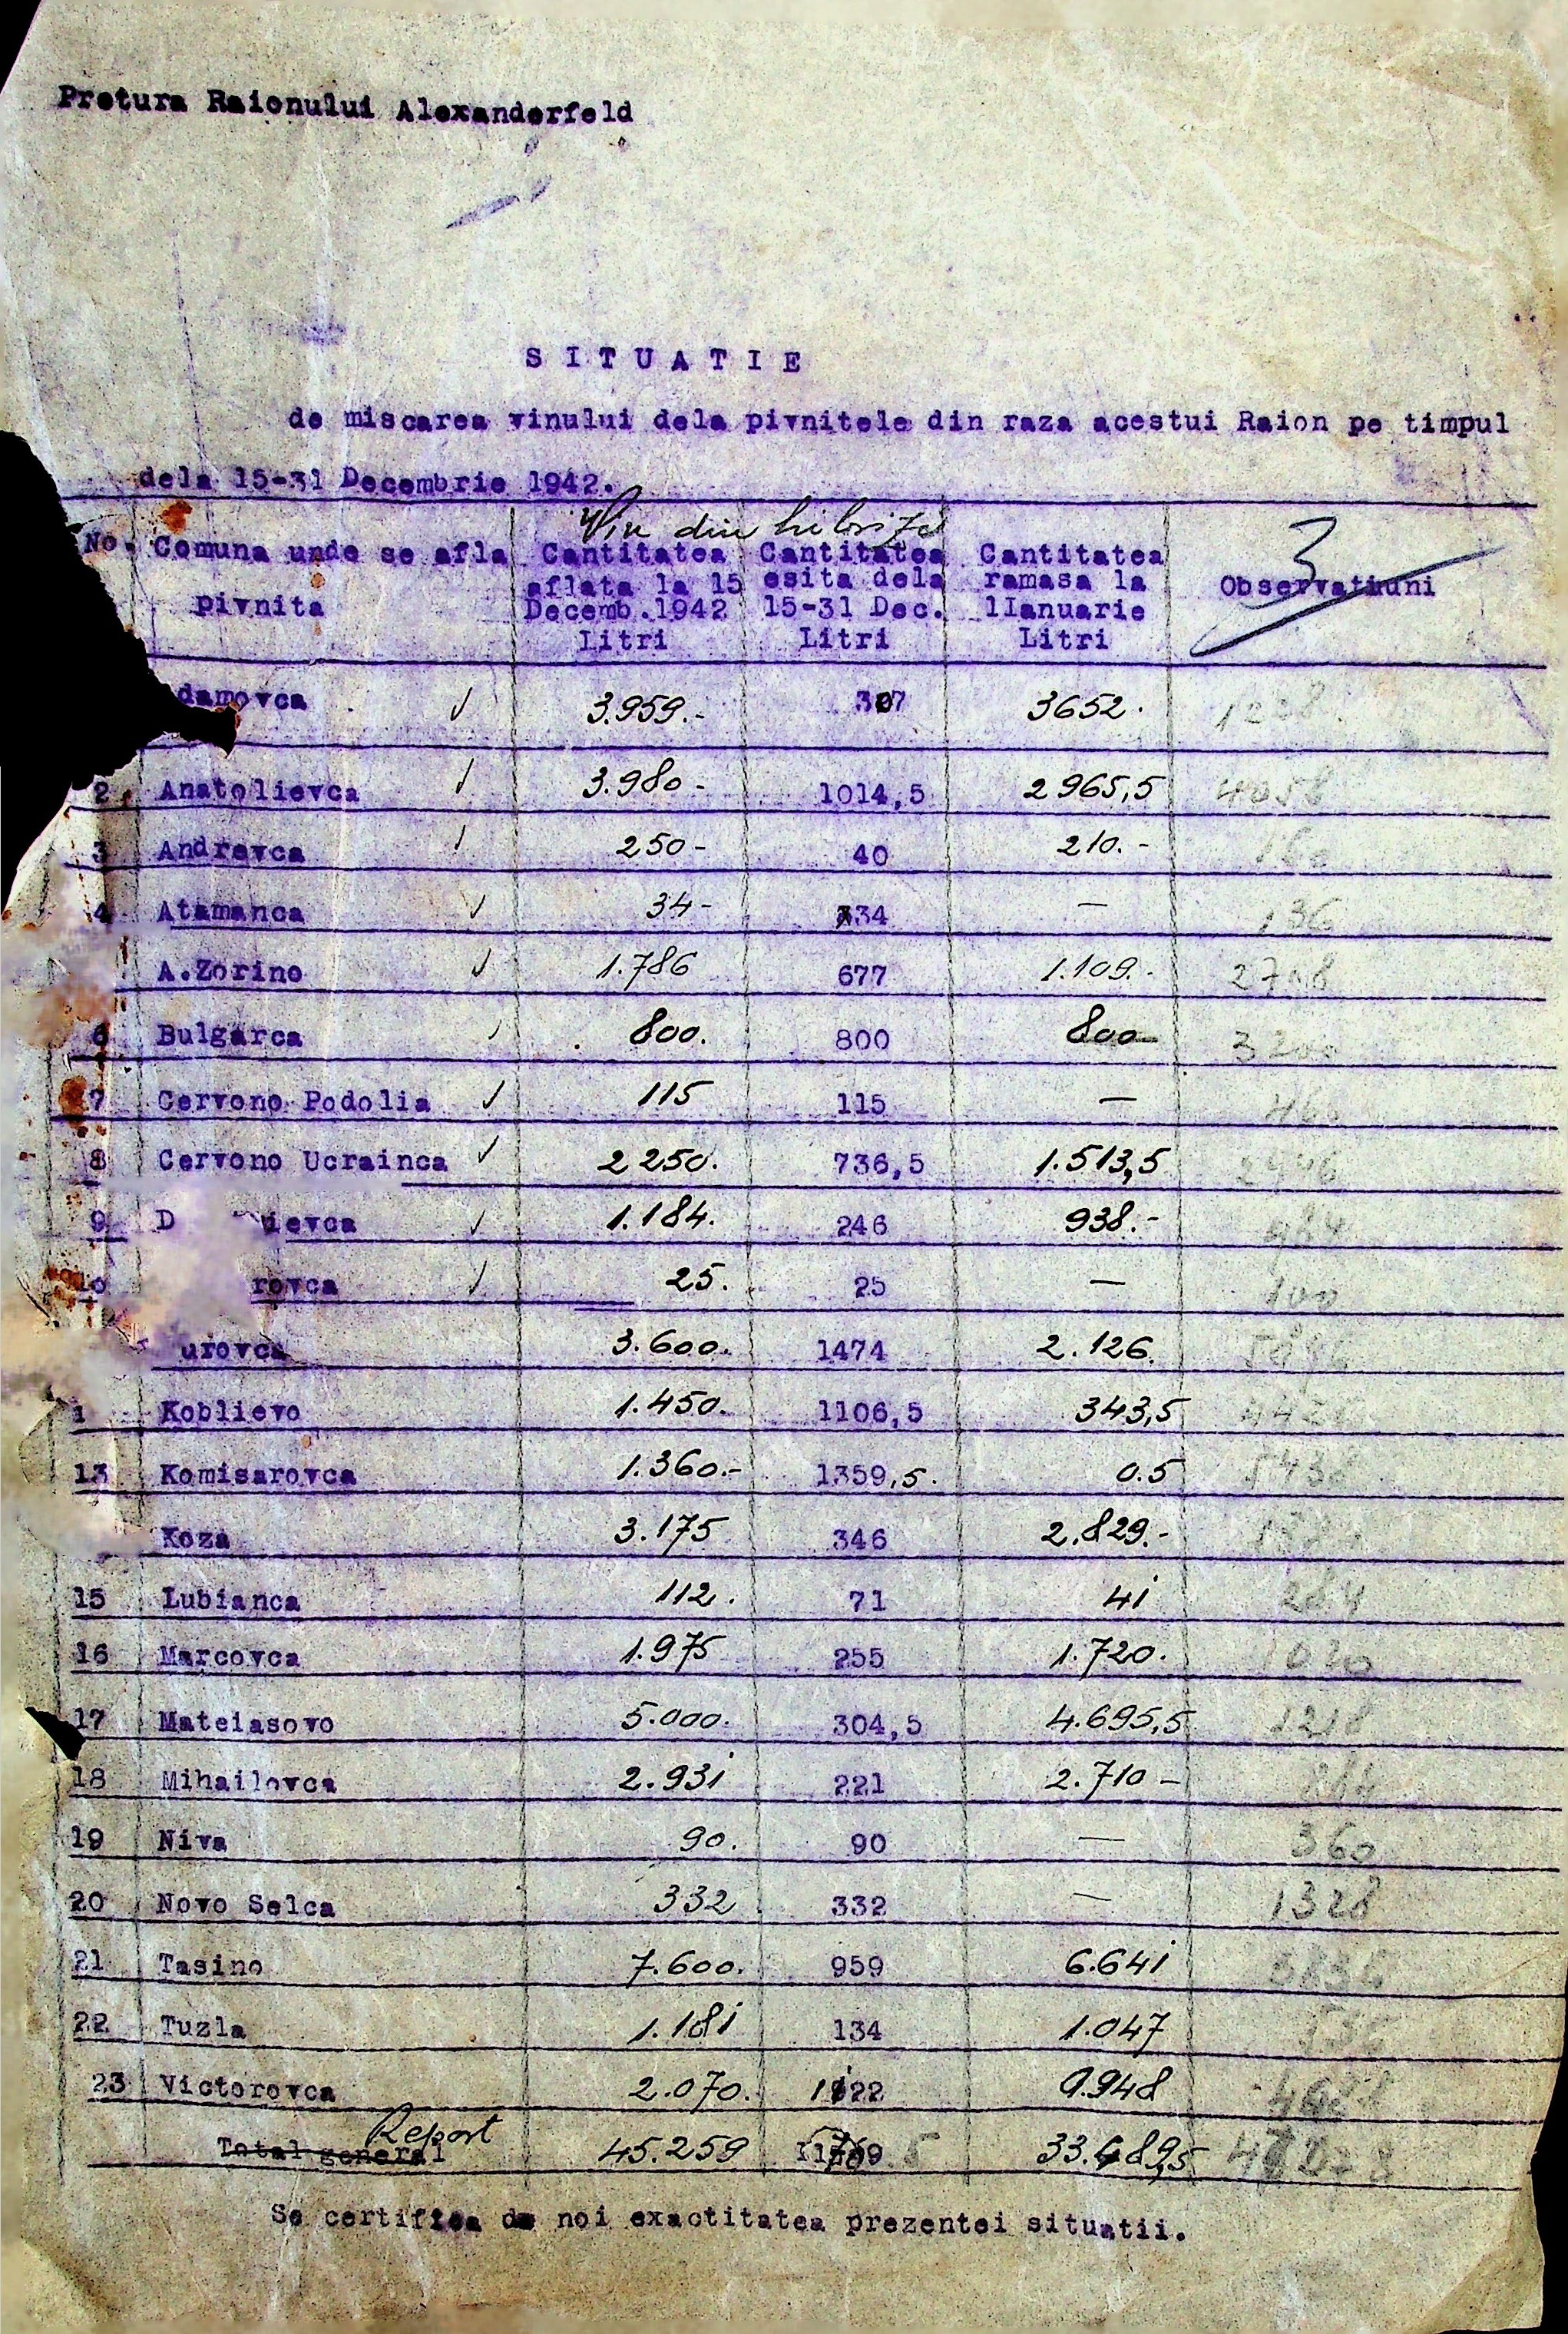 Pretura Raionului Alexanderfeld
SITUATIE
de miscarea vinului dela pivnitele din raza acestui Raion pe timpul
dela 15-31 Decembrie 1942.
Vin din
No. Comuna unde se afla pivnita Cantitatea aflata la 15 Decemb.1942 Litri Cantitatea esita dela 15-31 Dec. Litri Cantitatea ramasa la 1Ianuarie Litri Observatiuni 3
damovca 3.959.- 307 3652.
2. Anatolievca 3.980- 1014,5 2965,5 4058
3 Andrevca 250- 40 210.- 160
4 Atamanca 34- 34 — 136
A.Zorino 1.786 677 1.109.- 2708
6 Bulgarca 800. 800 800 3200
7 Cervono Podolia 115 115 — 460
8 Cervono Ucrainca 2250. 736,5 1.513,5 2946
9 D ievca 1.184. 246 938.- 984
10 rovca 25. 25 — 100
urovca 3.600. 1474 2.126.
1 Koblievo 1.450. 1106,5 343,5
13 Komisarovca 1.360.- 1359,5. 0.5 5438
Koza 3.175 346 2.829.-
15 Lubianca 112. 71 41 284
16 Marcovca 1.975 255 1.720. 1020
17 Mateiasovo 5.000. 304,5 4.695,5 1218
18 Mihailovca 2.931 221 2.710-
19 Niva 90. 90 — 360
20 Novo Selca 332 332 — 1328
21 Tasino 7.600. 959 6.641 3836
22 Tuzla 1.181 134 1.047 536
23 Victorovca 2.070. 1122 0.948
Total general Report 45.259 33.489,5
Se certifica de noi exactitatea prezentei situatii.